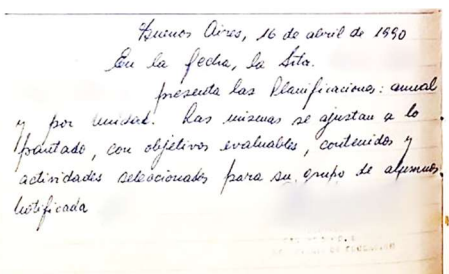 Buenos Aires, 16 de abril de 1990
En la fecha, la Srta.
presenta las Planificaciones: anual
y por unidad. Las mismas se ajustan a lo
pautado, con objetivos evaluables, contenidos y
actividades seleccionados para su grupo de alumnos.
Notificada